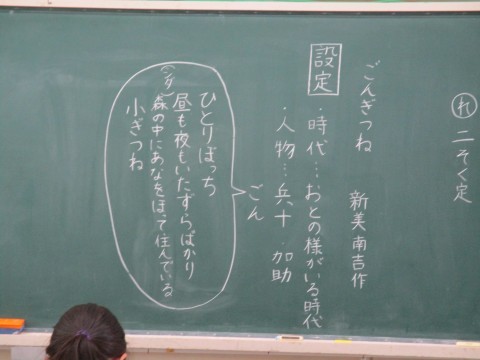 れ 二そく定
ごんぎつね 新美南吉作
設定
・時代…おとの様がいる時代
・人物…兵十・加助
ごん
ひとりぼっち
昼も夜もいたずらばかり
森の中にあなをほって住んでいる
小ぎつね